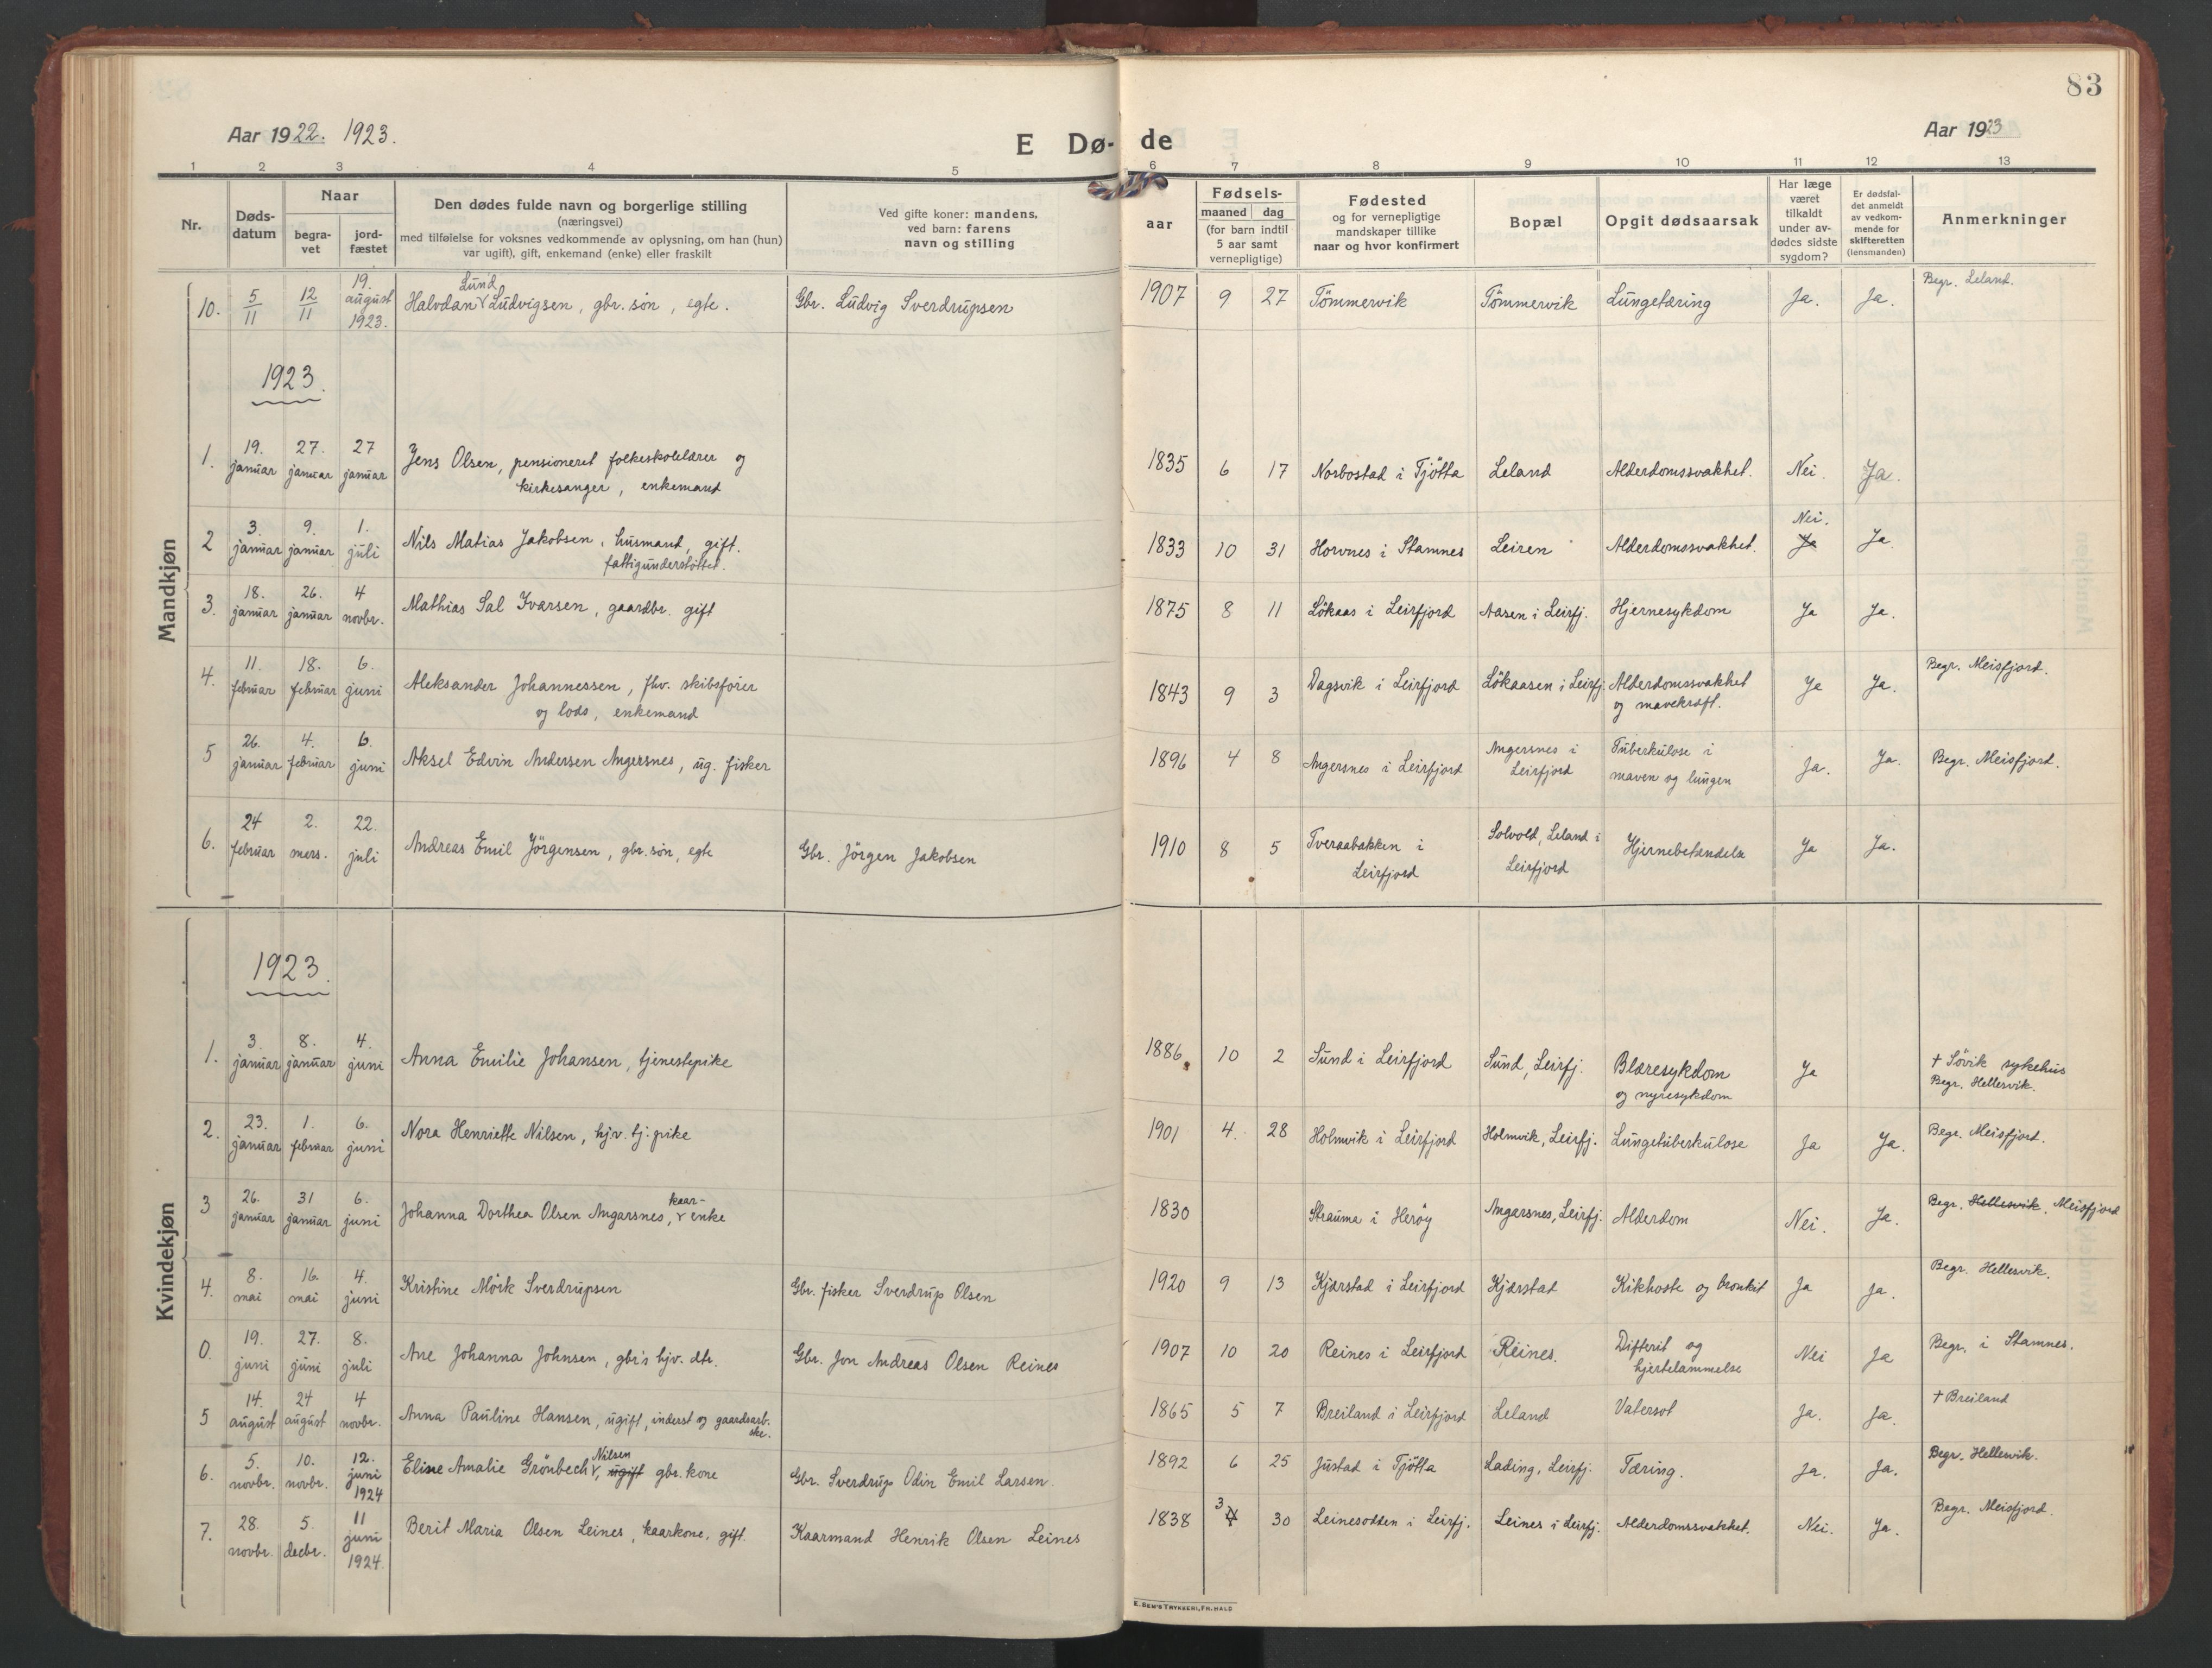 83
Aar 1922. 1923.
E Dø- de
Aar 1923
1 2 3 4 5 6 7 8 9 10 11 12 13
Nr.
Døds-
datum
Naar
begra-
vet
jord-
fæstet
Den dødes fulde navn og borgerlige stilling
(næringsvei)
med tilføielse for voksnes vedkommende av oplysning, om han (hun)
var ugift, gift, enkemand (enke) eller fraskilt
Ved gifte koner: mandens,
ved barn: farens
navn og stilling
aar
Fødsels-
maaned dag
(for barn indtil
5 aar samt
vernepligtige)
Fødested
og for vernepligtige
mandskaper tillike
naar og hvor konfirmert
Bopæl
Opgit dødsaarsak
Har læge
været
tilkaldt
under av-
dødes sidste
sygdom?
Er dødsfal-
det anmeldt
av vedkom-
mende for
skifteretten
(lensmanden)
Anmerkninger
Mandkjøn
10. 5/11 12/11 19. august 1923. Halvdan Lund Ludvigsen, gbr. søn, egte. Gbr. Ludvig Sverdrupsen 1907 9 27 Tömmervik Tömmervik Lungetæring Ja. Ja. Begr. Leland.
1923.
1. 19. januar 27. januar 27 januar Jens Olsen, pensioneret folkeskolelærer og
kirkesanger, enkemand 1835 6 17 Norbostad i Tjötta Leland Alderdomssvakhet. Nei. Ja.
2 3. januar 9. januar 1. juli Nils Matias Jakobsen, husmand, gift.
fattigunderstöttet. 1833 10 31 Horvnes i Stamnes Leiren Alderdomssvakhet. Ja Nei. Ja.
3. 18. januar 26. januar 4 novbr. Mathias Sal Ivarsen, gaardbr. gift 1875 8 11 Lökaas i Leirfjord Aasen i Leirfj. Hjernesykdom Ja Ja.
4. 11. februar 18. februar 6. juni Aleksander Johannessen, fhv. skibsförer
og lods, enkemand 1843 9 3 Dagsvik i Leirfjord Lökaasen i Leirfj. Alderdomssvakhet
og mavekræft. Ja Ja. Begr. Meisfjord.
5 26. januar 4. februar 6. juni Aksel Edvin Andersen Angersnes, ug. fisker 1896 4 8 Angersnes i Leirfjord Angersnes i
Leirfjord Tuberkulose i
maven og lungen Ja. Ja. Begr. Meisfjord.
6. 24 februar 2. mars. 22. juli Andreas Emil Jörgensen, gbr. søn, egte Gbr. Jörgen Jakobsen 1910 8 5 Tveraabakken i
Leirfjord Solvold, Leland i
Leirfjord Hjernebetændelse Ja Ja.
Kvindekjøn
1923.
1. 3. januar 8. januar 4. juni Anna Emilie Johansen, tjenestepike 1886 10 2 Sund i Leirfjord Sund, Leirfj. Blæresykdom
og nyresykdom Ja † Sövik sykehus
Begr. Hellesvik.
2. 23. januar 1. februar 6. juni Nora Henriette Nilsen, hjv. tj. pike 1901 4. 28 Holmvik i Leirfjord Holmvik, Leirfj. Lungetuberkulose Ja Ja. Begr. Meisfjord.
3 26. januar 31 januar 6. juni Johanna Dorthea Olsen Angarsnes, kaar-enke 1830 Strauma i Heröy Angarsnes, Leirfj. Alderdom Nei. Ja. Begr. Hellesvik. Meisfjord
4. 8. mai 16. mai 4. juni Kristine Mörk Sverdrupsen Gbr. fisker Sverdrup Olsen 1920 9 13 Kjærstad i Leirfjord Kjærstad Kikhoste og bronkit Ja Ja. Begr. Hellesvik.
0. 19. juni 27. juni 8. juli Ane Johanna Johnsen, gbr's hjv. dtr. Gbr. Jon Andreas Olsen Reines 1907 10 20 Reines i Leirfjord Reines. Difterit og
hjertelammelse Nei Ja Begr. i Stamnes.
5 14. august 24 august 4 novbr. Anna Pauline Hansen, ugift, inderst og gaardsarb.
ske. 1865 5 7 Breiland i Leirfjord Leland Vatersot Ja. Ja. † Breiland
6. 5. novbr. 10. novbr. 12. juni 1924 Eline Amalie Grönbech Nilsen, ugift gbr. kone Gbr. Sverdrup Odin Emil Larsen. 1892 6 25 Justad i Tjötta Lading, Leirfj. Tæring. Ja. Ja. Begr. Hellesvik.
7. 28. novbr. 5. decbr. 11 juni 1924. Berit Maria Olsen Leines, kaarkone, gift. Kaarmand Henrik Olsen Leines 1838 3 30 Leinesodden i Leirfj. Leines i Leirfj. Alderdomssvakhet. Nei. Ja. Begr. Meisfjord.
E. SEM'S TRYKKERI, FR.HALD